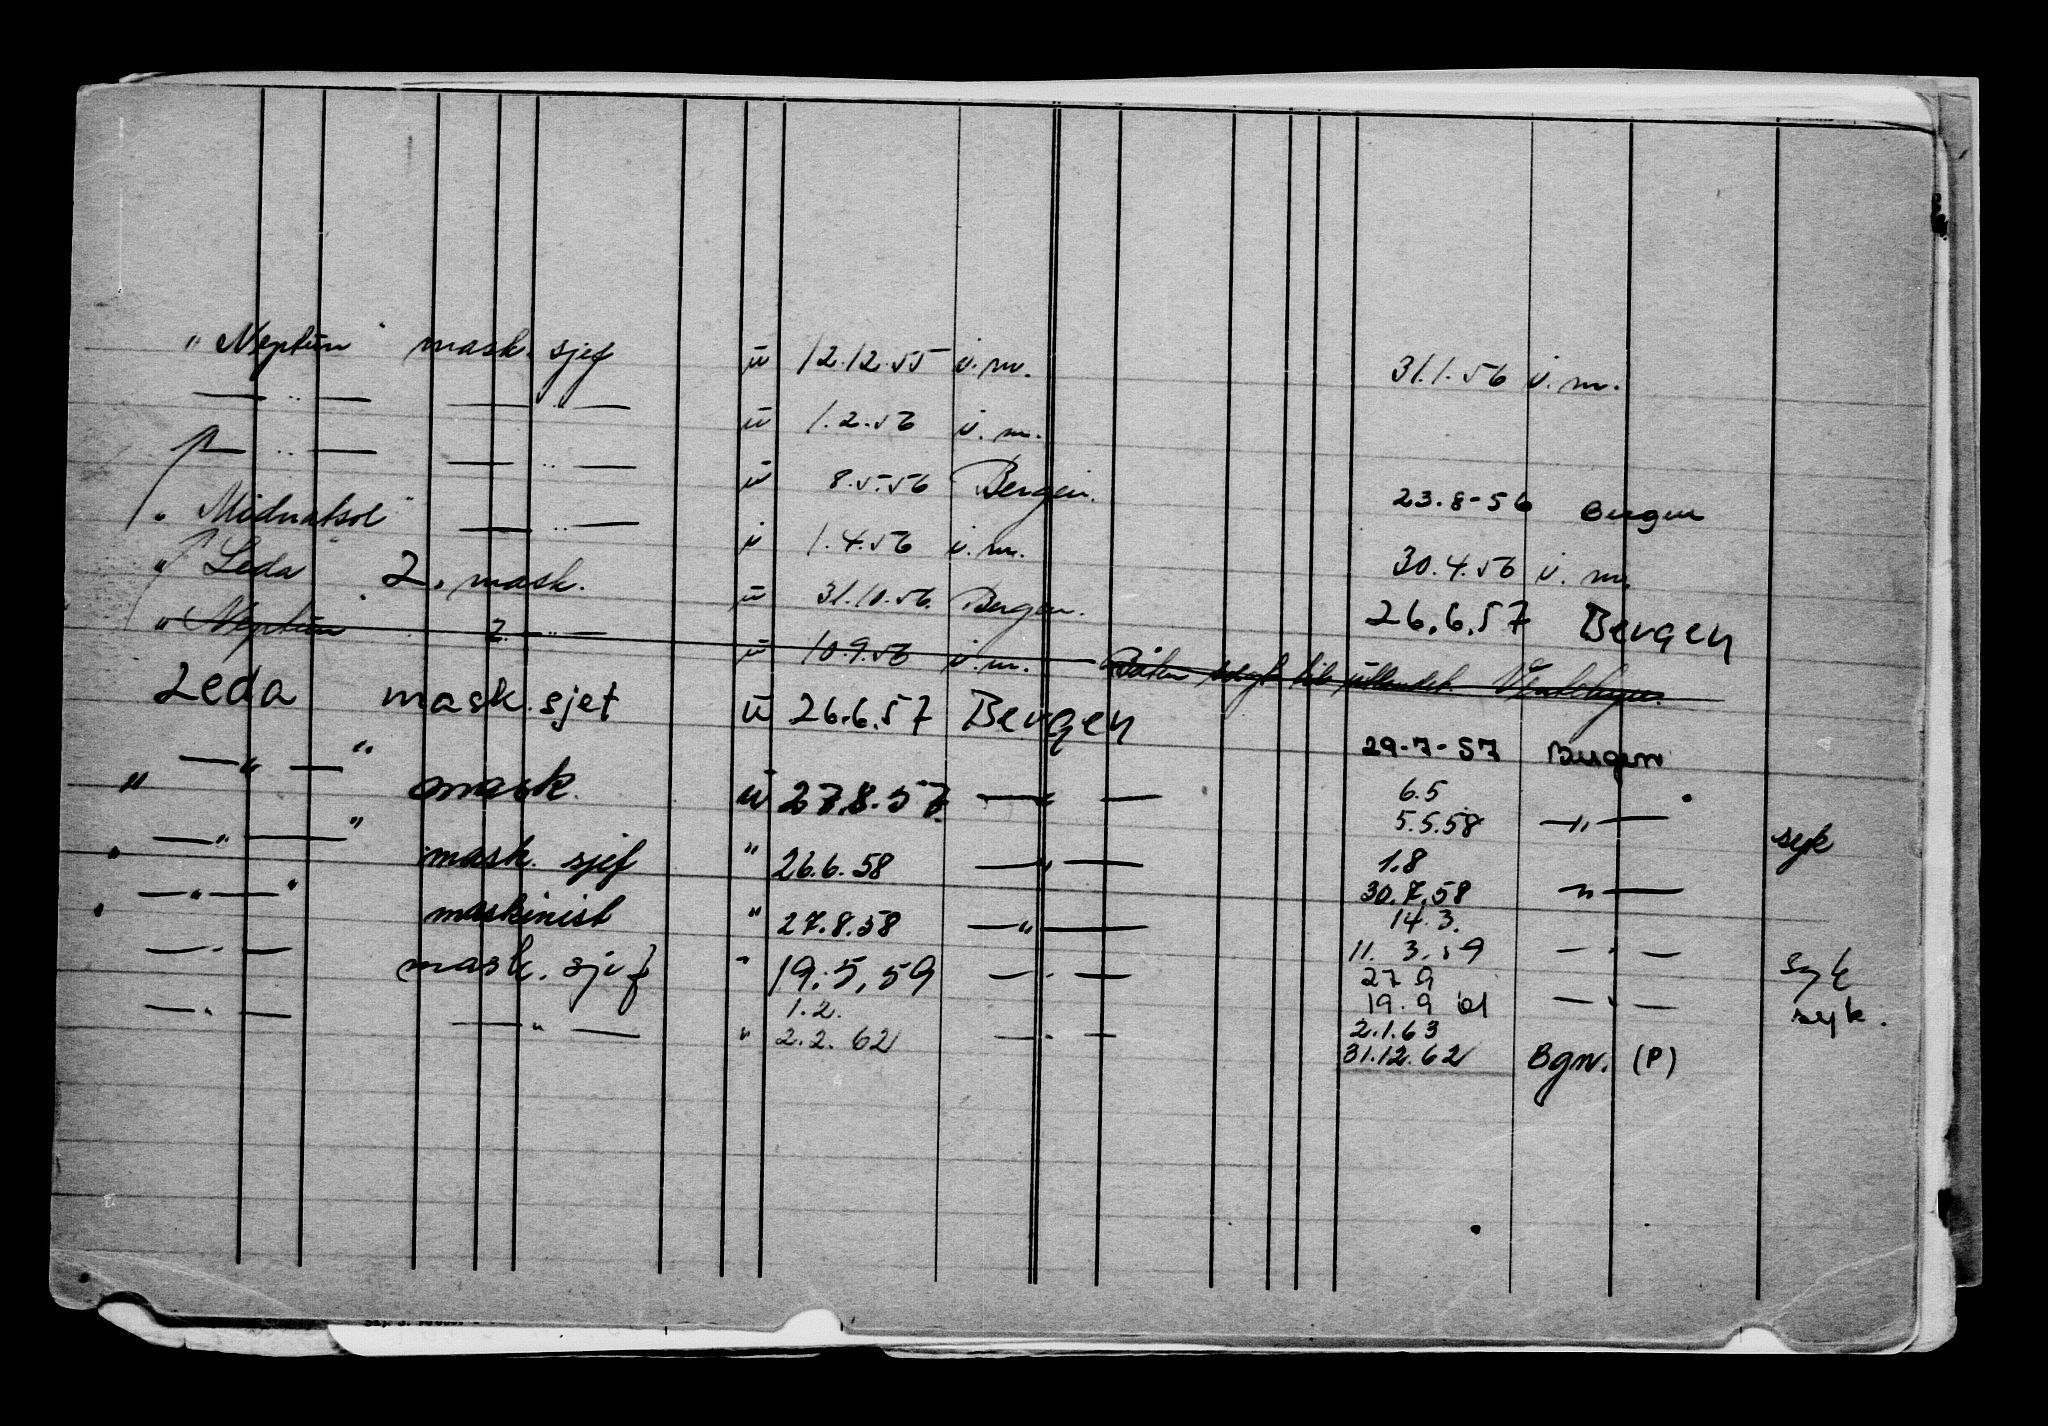 "Neptun" mask. sjef u 12.12.55 i.m. 31.1.56 i.m.
— " — — " — u 1.2.56 i.m.
— " — — " — u 8.5.56 Bergen. 23.8-56 Bergen
"Midnatsol" — " — u 1.4.56 i.m. 30.4.56 i.m.
"Leda 2. mask. u 31.10.56. Bergen. 26.6.57 Bergen
"Neptun 2. — " — u 10.9.56 i.m. Båten solgt til utlandet
Leda mask.sjef u 26.6.57 Bergen 29-7-57 Bergen
" — " — " mask. u 27.8.57. — " — 6.5
5.5.58 — " —
" — " — " mask. sjef " 26.6.58 — " — 1.8 syk
30.7.58 — " —
" — " — " maskinist " 27.8.58 — " — 14.3.
11.3.59 — " —
— " — mask. sjef " 19.5.59 — " — 27.9 syk
19.9 61 — " — syk.
— " — — " — " 1.2.
2.2.62 — " — 2.1.63
31.12.62 Bgn. (P)